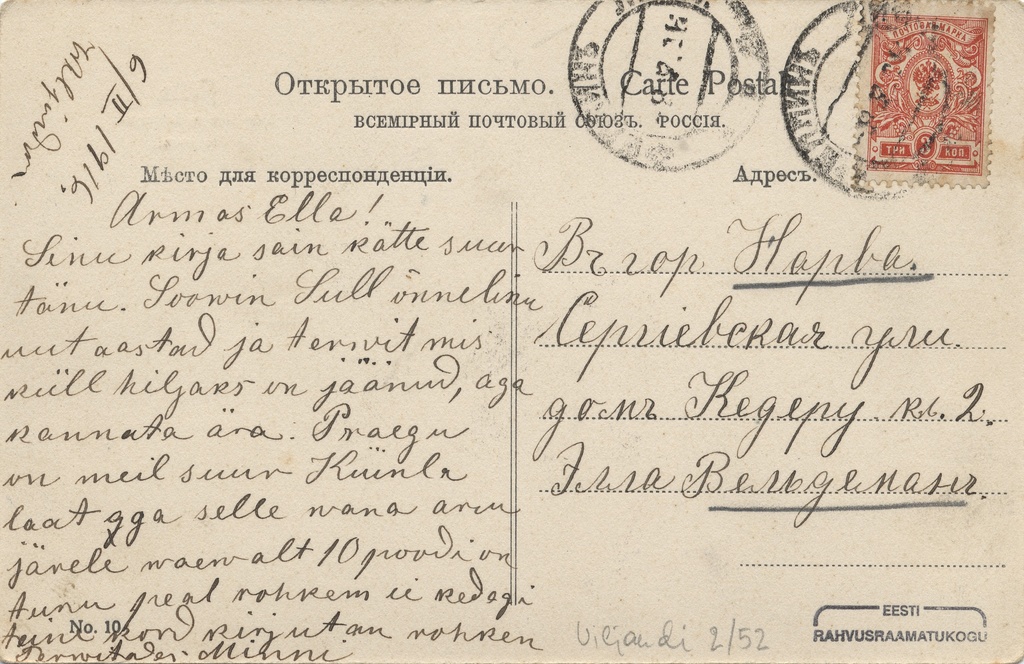 6/II 1916.
Открытое письмо. Carte Postale
ВСЕМІРНЫЙ ПОЧТОВЫЙ СОЮЗЪ. РОССІЯ.
Мѣсто для корреспонденціи.
Адресъ.
ПОЧТОВАЯ МАРКА
ТРИ 3 КОП
Armas Ella!
Sinu kirja sain kätte suur
tänu. Soowin Sull õnnelinu
uut aastad ja terwit mis
küll hiljaks on jäänud, aga
kannata ära. Praegu
on meil suur Küünla
laat aga selle wana aru
järele waewalt 10 poodi on
turu peal rohkem ei kedagi
teine kord kirjutan rohken
Terwitades Minni
No. 10
Въ гор Нарва.
Сергіевская ули.
домъ Кедеру кв. 2.
Элла Вельдеманъ.
Viljandi 2/52
EESTI
RAHVUSRAAMATUKOGU